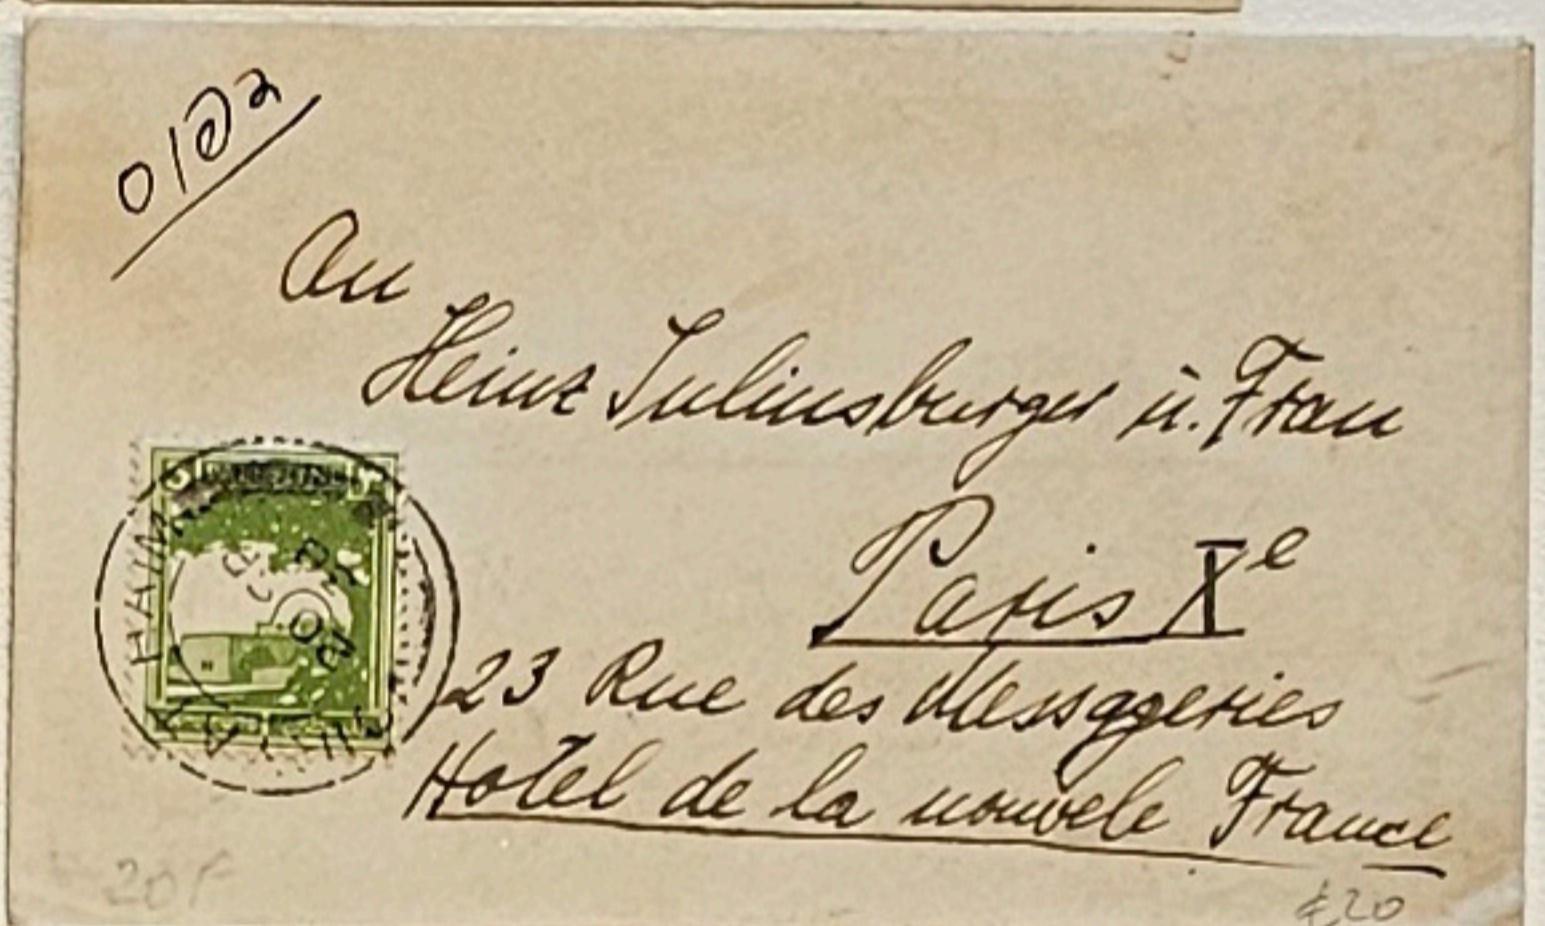 דפוס
An
Heinz Juliusburger u. Frau
Paris Xe
23 Rue des Messageries
Hotel de la nouvele France
HAIM
£20